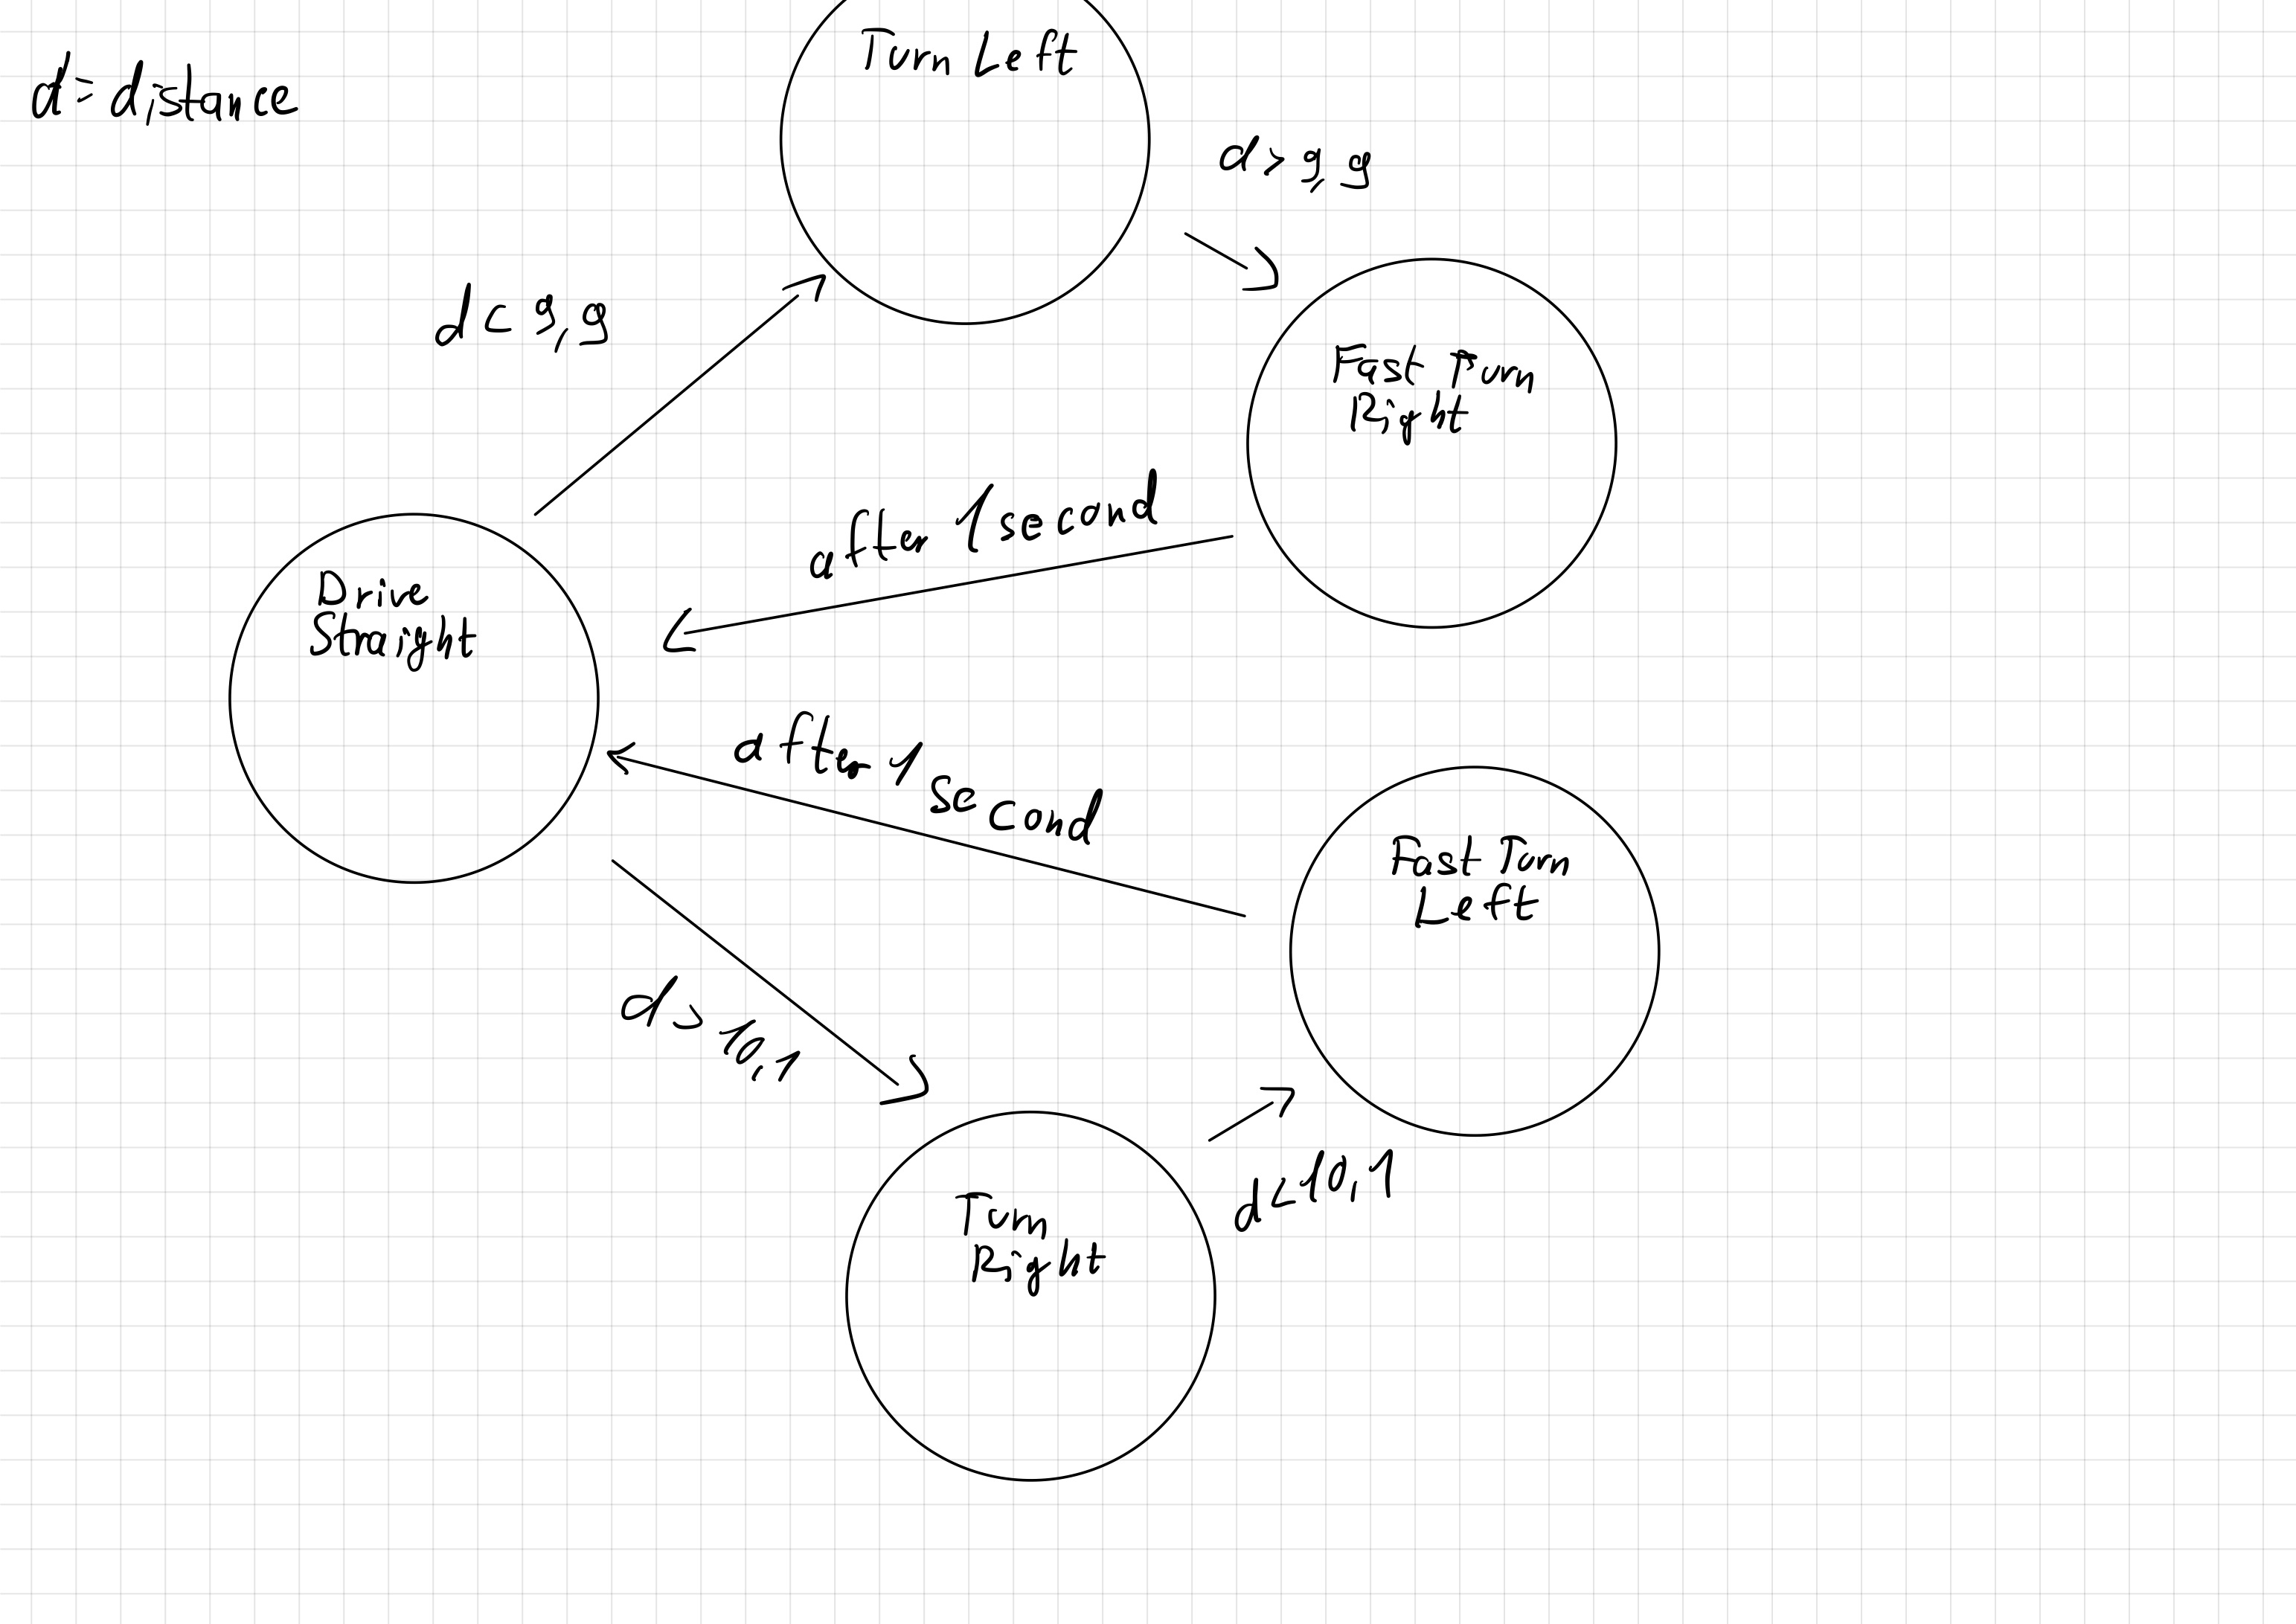 d = distance
Turn Left
d > 9,9
d < 9,9
Fast Turn
Right
after 1 second
Drive
Straight
after 1 second
Fast Turn
Left
d > 10,1
d < 10,1
Turn
Right